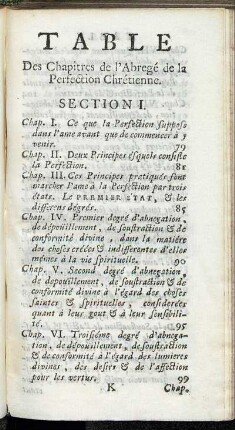 TABLE
Des Chapitres de l'Abregé de la
Perfection Chrétienne.
SECTION I.
Chap. I. Ce que la Perfection suppose
dans l'ame avant que de commencer à y
venir. 79
Chap. II. Deux Principes esquels consiste
la Perfection. 81
Chap. III. Ces Principes pratiqués font
marcher l'ame à la Perfection par trois
états. LE PREMIER ETAT, & les
differens dégrés. 85
Chap. IV. Premier degré d'abnegation,
de dépouillement, de soustraction & de
conformité divine, dans la matière
des choses créées & indifferentes d'elles
mêmes à la vie spirituelle. 90
Chap. V. Second degré d'abnegation,
de depouillement, de soustraction & de
conformité divine à l'égard des choses
saintes & spirituelles, considerées
quant à leur gout & à leur sensibili-
té. 95
Chap. VI. Troisiéme degré d'abnega-
tion, de dépouillement, de soustraction
& de conformité à l'égard des lumieres
divines, des desirs & de l'affection
pour les vertus. 99
K Chap.